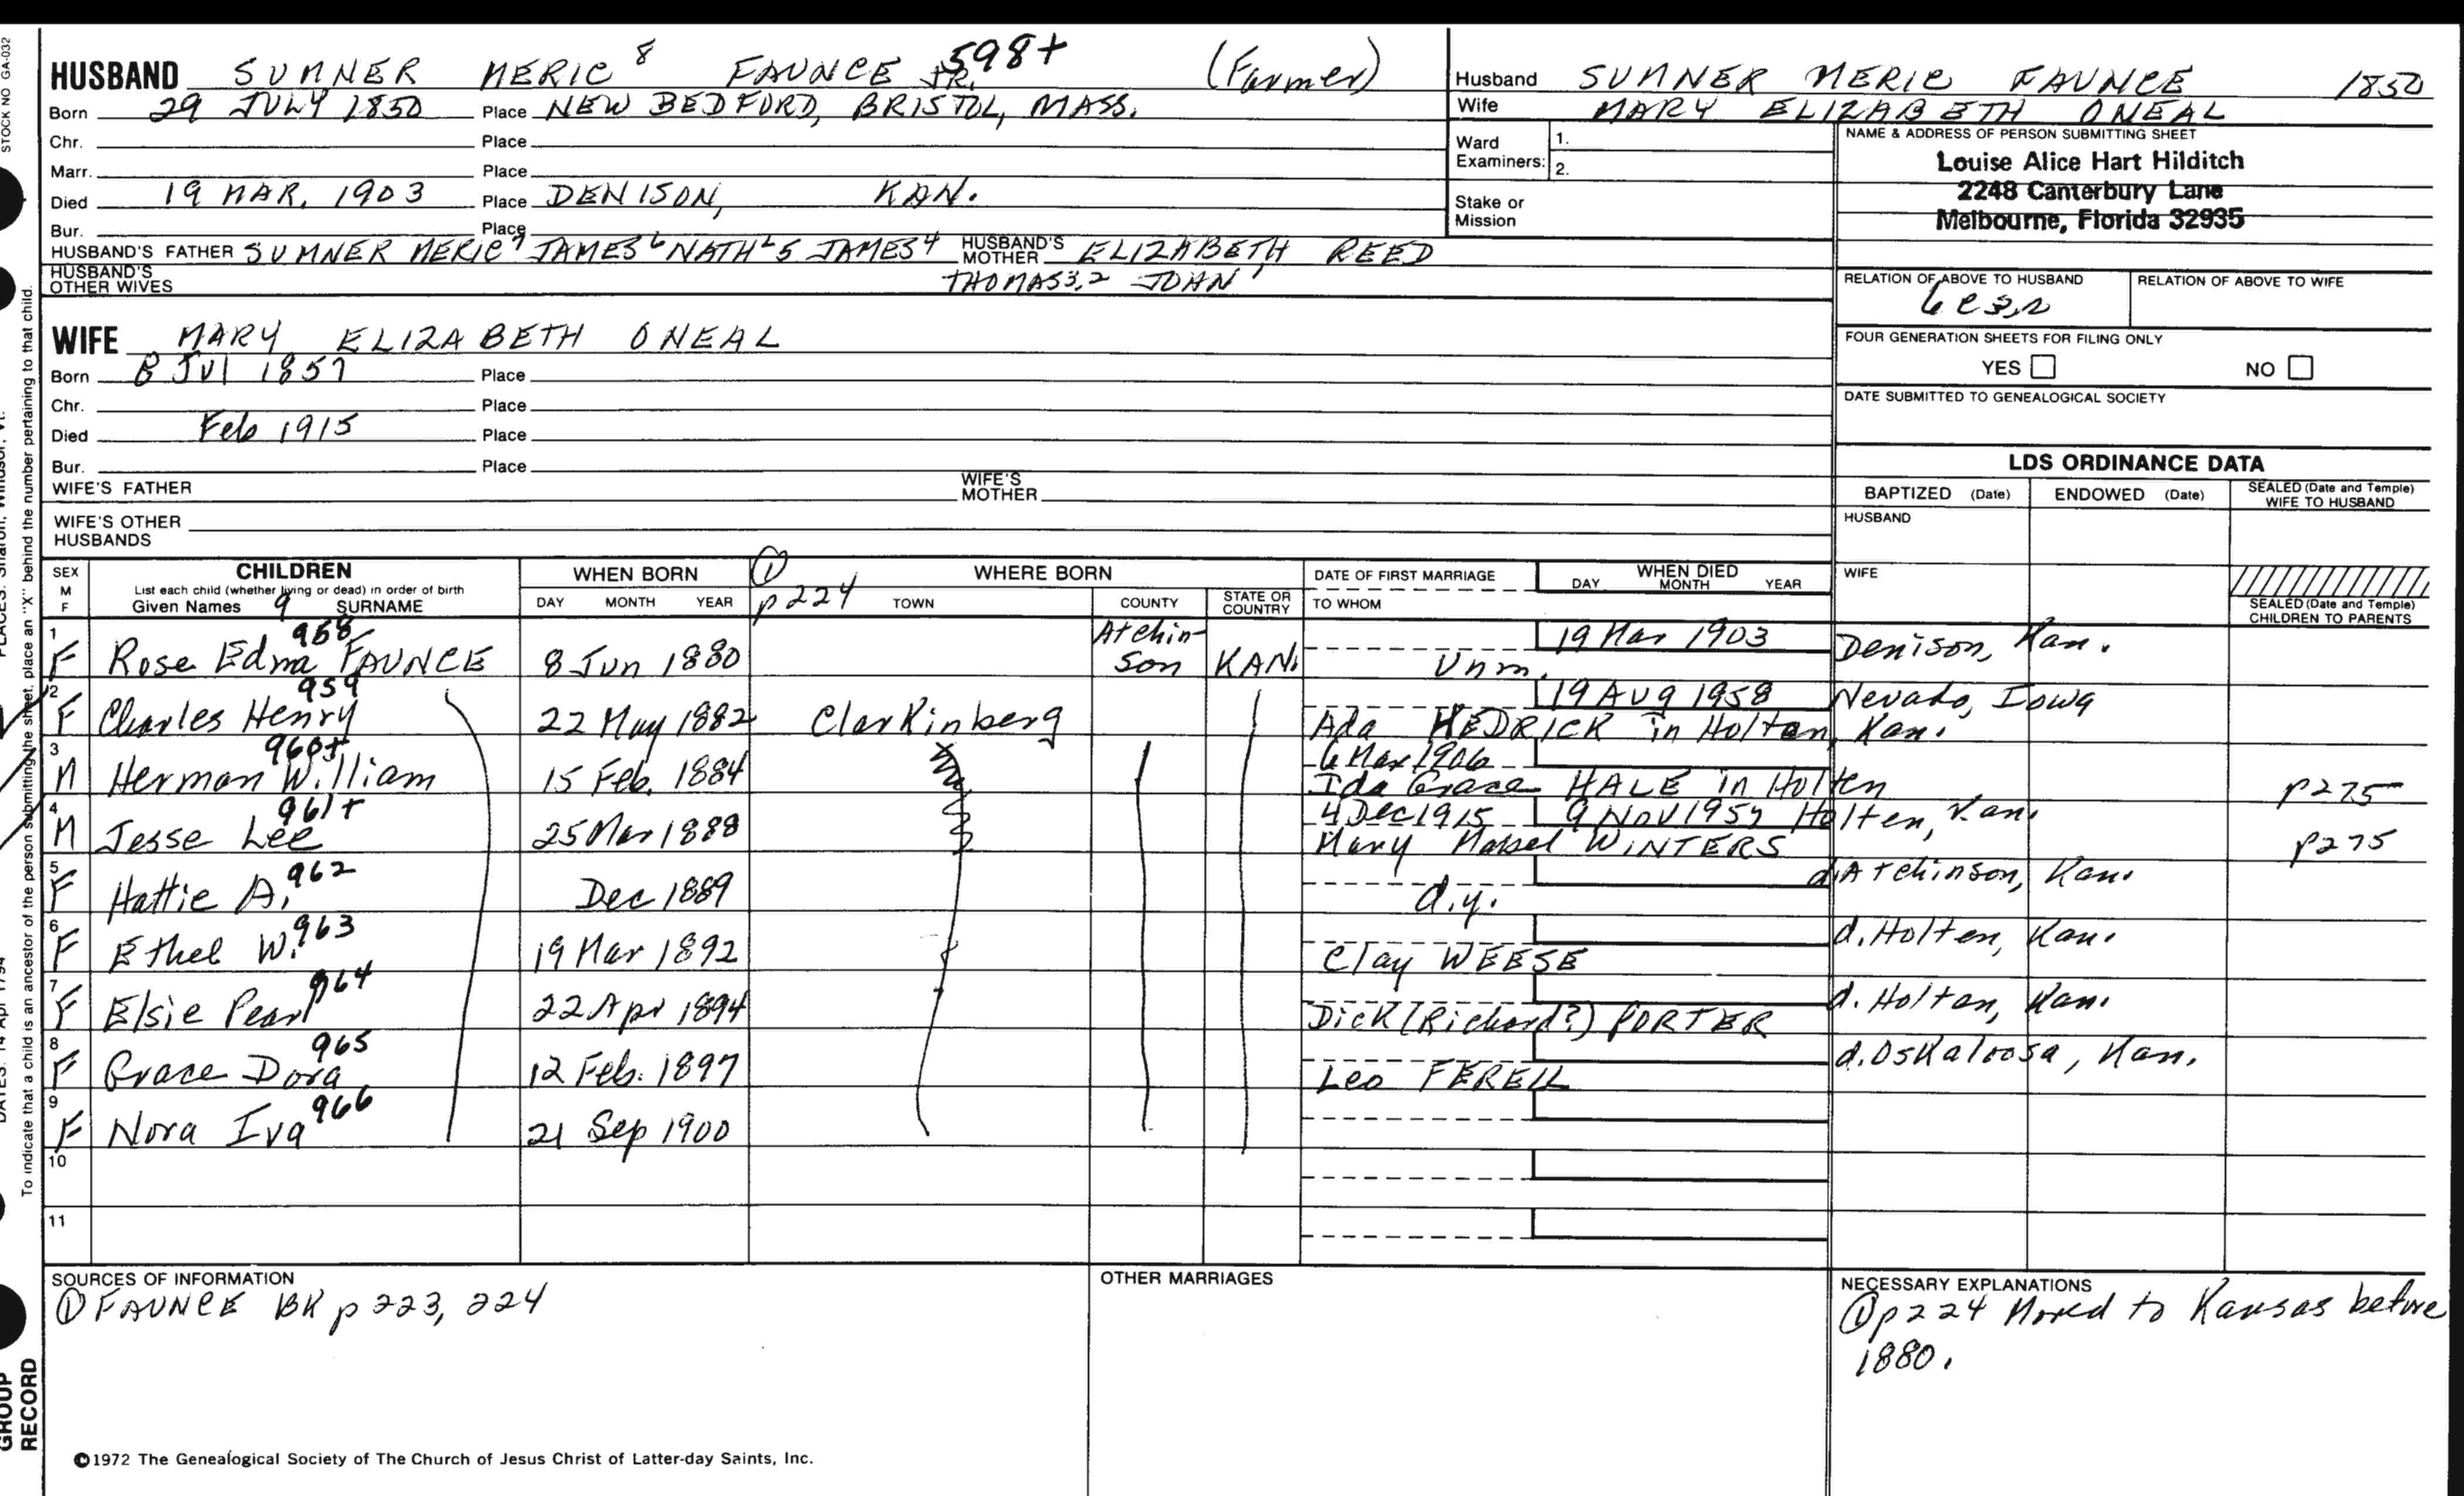 STOCK NO GA-032
HUSBAND SUMNER MERIC 8 FAUNCE JR. 598+ (Farmer)
Born 29 JULY 1850 Place NEW BEDFORD, BRISTOL, MASS.
Chr. Place
Marr. Place
Died 19 MAR. 1903 Place DENISON, KAN.
Bur. Place
HUSBAND'S FATHER SUMNER MERIC 7 JAMES 6 NATH'L 5 JAMES 4 HUSBAND'S MOTHER ELIZABETH REED
HUSBAND'S OTHER WIVES THOMAS 3,2 JOHN 1
WIFE MARY ELIZABETH ONEAL
Born 8 Jul 1857 Place
Chr. Place
Died Feb 1915 Place
Bur. Place
WIFE'S FATHER WIFE'S MOTHER
WIFE'S OTHER HUSBANDS
Husband SUMNER MERIC FAUNCE 1850
Wife MARY ELIZABETH ONEAL
Ward Examiners: 1.
2.
Stake or Mission
NAME & ADDRESS OF PERSON SUBMITTING SHEET
Louise Alice Hart Hilditch
2248 Canterbury Lane
Melbourne, Florida 32935
RELATION OF ABOVE TO HUSBAND RELATION OF ABOVE TO WIFE
FOUR GENERATION SHEETS FOR FILING ONLY
YES NO
DATE SUBMITTED TO GENEALOGICAL SOCIETY
LDS ORDINANCE DATA
BAPTIZED (Date) ENDOWED (Date) SEALED (Date and Temple) WIFE TO HUSBAND
HUSBAND
WIFE
SEALED (Date and Temple) CHILDREN TO PARENTS
SEX M F CHILDREN List each child (whether living or dead) in order of birth Given Names 9 SURNAME
WHEN BORN DAY MONTH YEAR
① p 224 WHERE BORN TOWN COUNTY STATE OR COUNTRY
DATE OF FIRST MARRIAGE TO WHOM
WHEN DIED DAY MONTH YEAR
1 F Rose Edna FAUNCE 958 8 Jun 1880 Atchin-son KAN. Unm. 19 Mar 1903 Denison, Kan.
2 F Charles Henry 959 22 May 1882 Clarkinberg Ada HEDRICK in Holton, Kan. 19 AUG 1958 Nevada, Iowa
3 M Herman William 960+ 15 Feb. 1884 6 Mar 1906 Ida Grace HALE in Holten p275
4 M Jesse Lee 961+ 25 Mar 1888 4 Dec 1915 Mary Mabel WINTERS 9 Nov 1957 Holten, Kan. p275
5 F Hattie A. 962 Dec 1889 d.y. d. Atchinson, Kan.
6 F Ethel W. 963 19 Mar 1892 Clay WEESE d. Holten, Kan.
7 F Elsie Pearl 964 22 Apr 1894 Dick (Richard?) PORTER d. Holton, Kan.
8 F Grace Dora 965 12 Feb. 1897 Leo FERELL d. Oskaloosa, Kan.
9 F Nora Iva 966 21 Sep 1900
10
11
SOURCES OF INFORMATION
① FAUNCE BK p 223, 224
OTHER MARRIAGES
NECESSARY EXPLANATIONS
① p224 Moved to Kansas before
1880.
©1972 The Genealogical Society of The Church of Jesus Christ of Latter-day Saints, Inc.
To indicate that a child is an ancestor of the person submitting the sheet, place an "X" behind the number pertaining to that child.
GROUP
RECORD